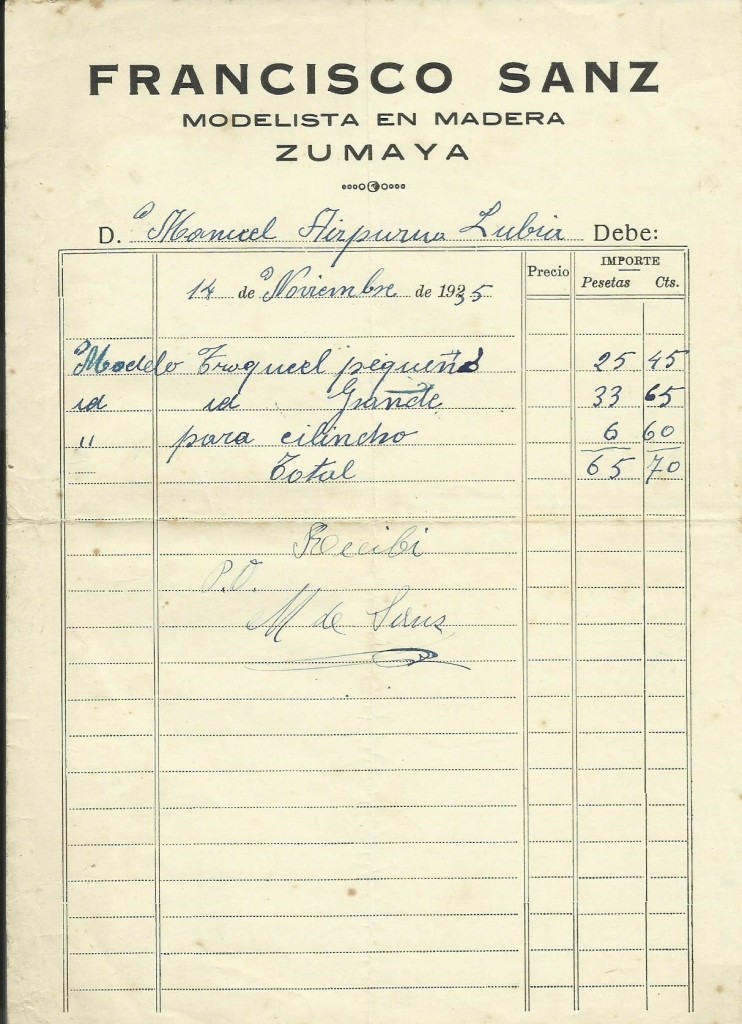 FRANCISCO SANZ
MODELISTA EN MADERA
ZUMAYA
D. Manuel Aizpurua Lubia Debe:
14 de Noviembre de 1935
Precio
IMPORTE
Pesetas Cts.
Modelo Troquel pequeño 25 45
id id Grande 33 65
" para cilindro 6 60
Total 65 70
Recibi
P.O.
M de Sanz